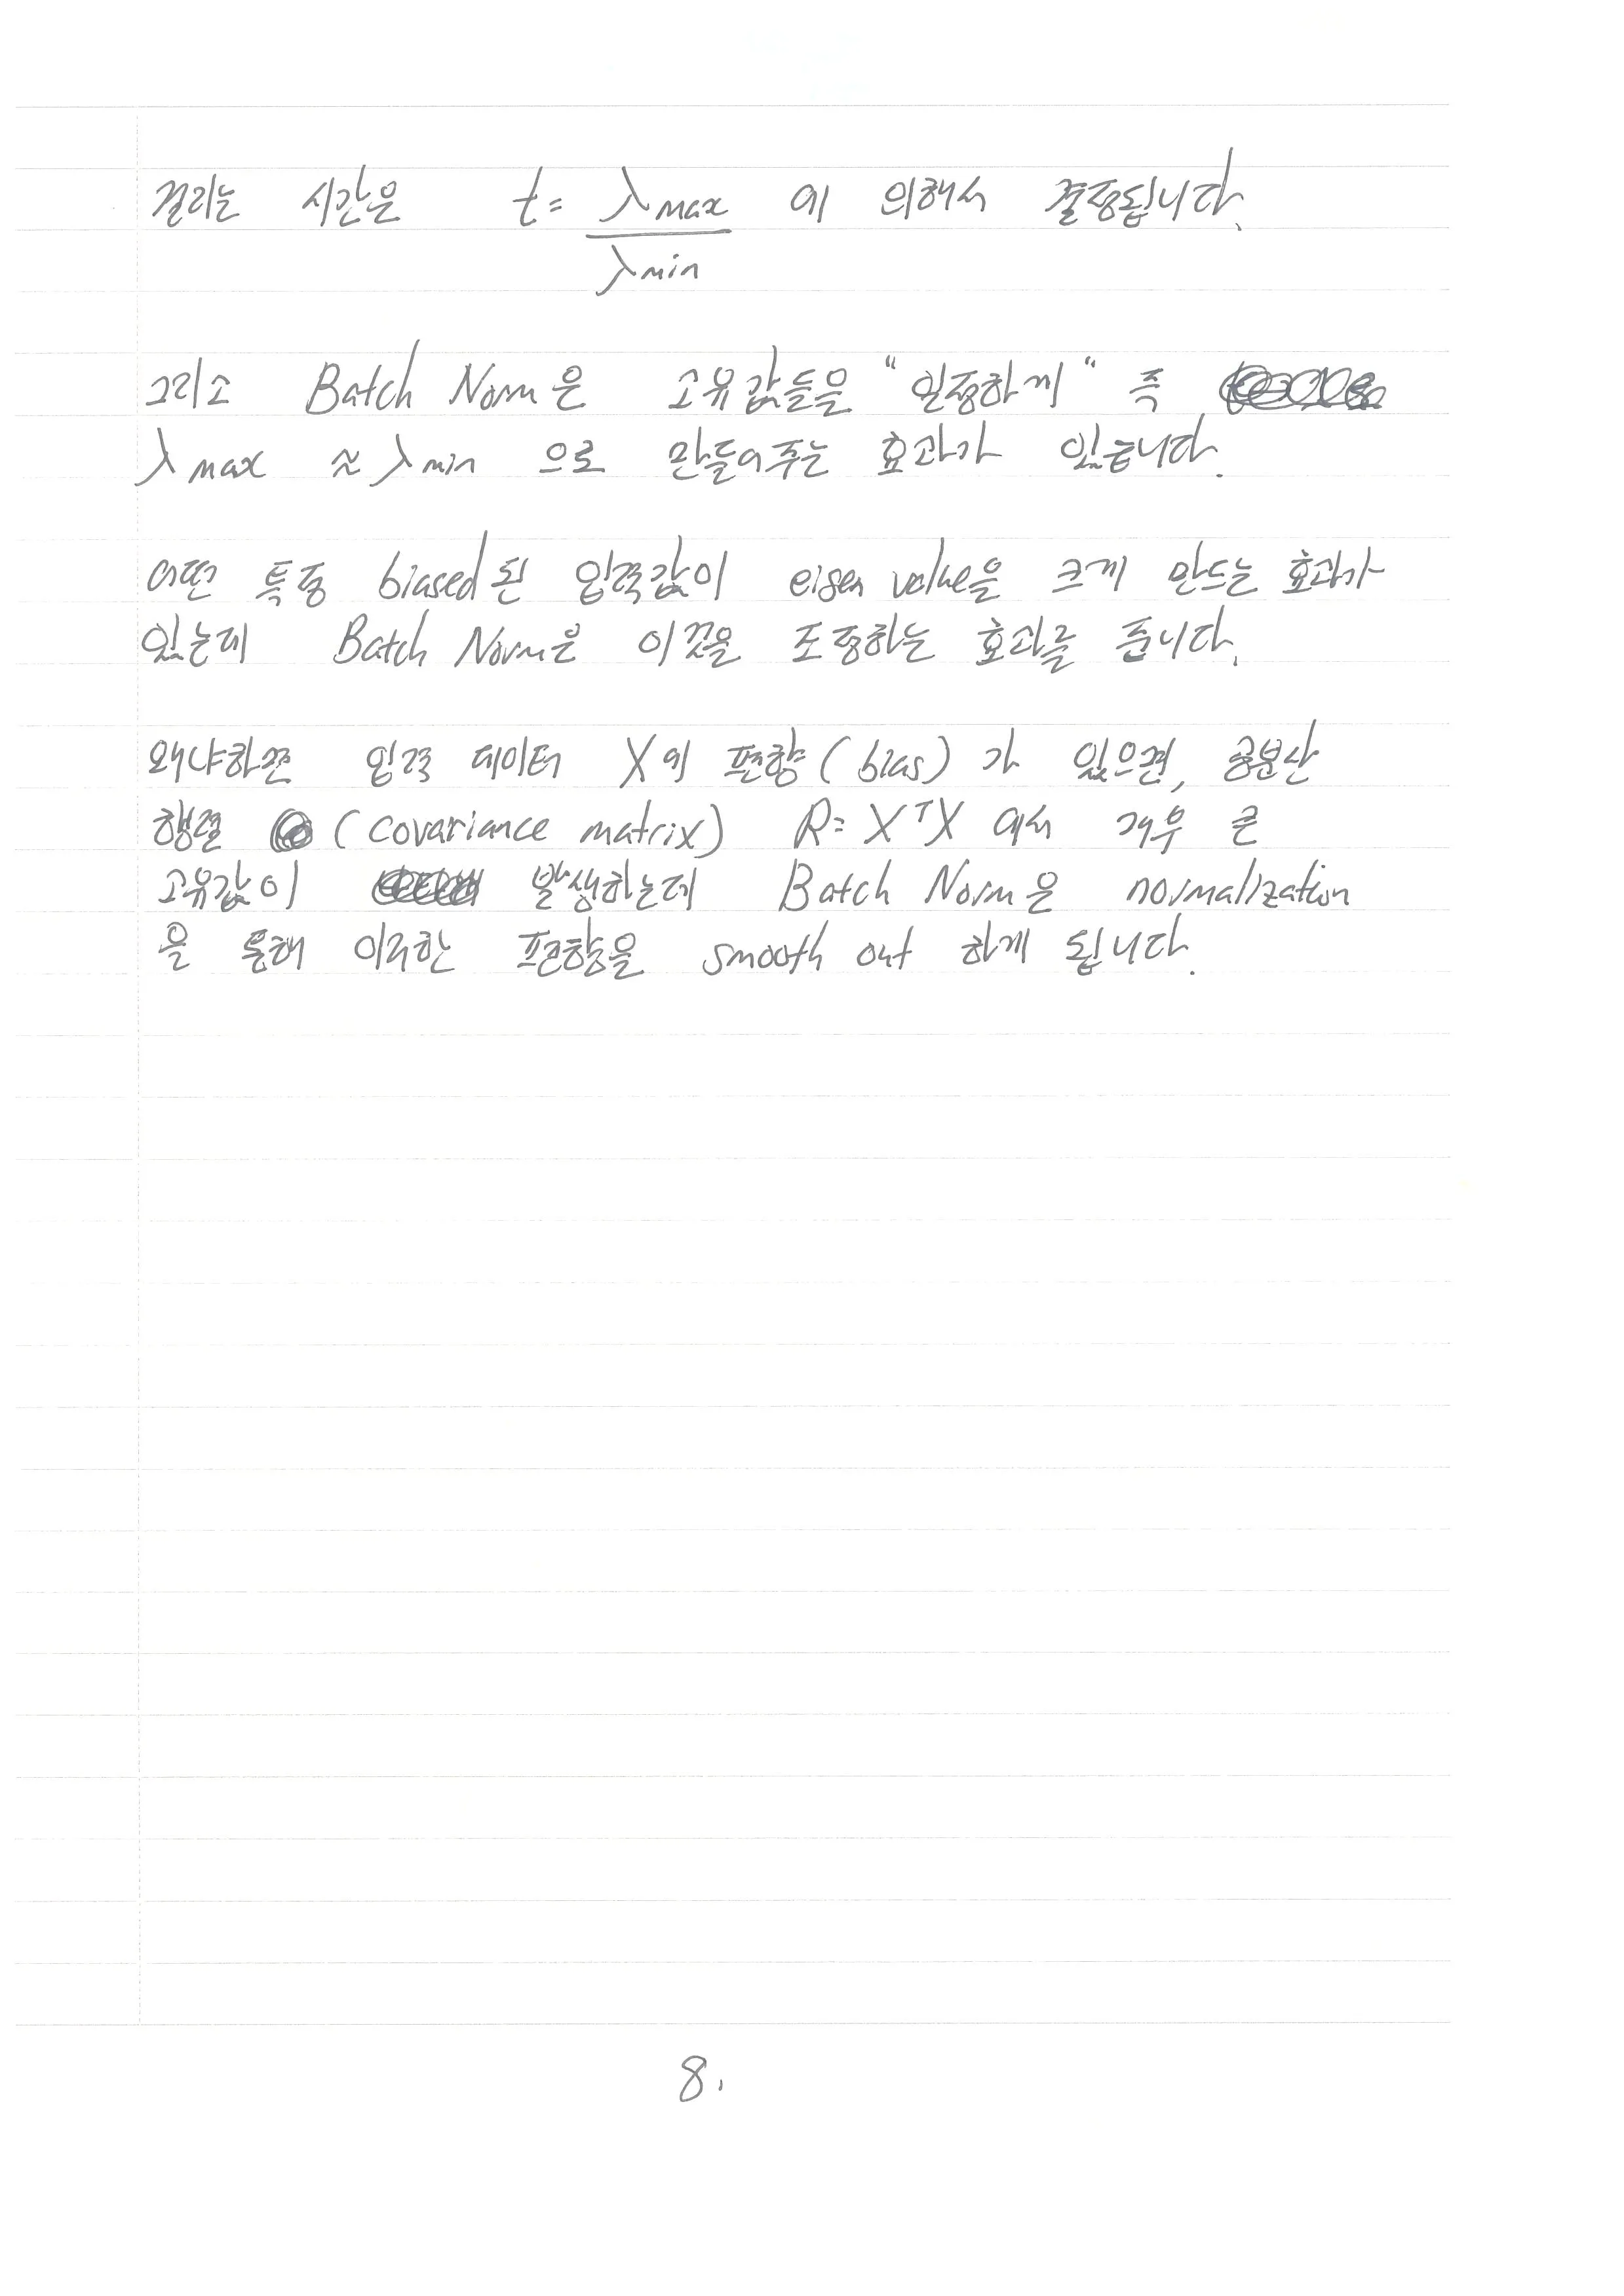 걸리는 시간은 t = λmax / λmin 에 의해서 결정됩니다.
그리고 Batch Norm은 고유값들을 "일정하게" 즉
λmax ≈ λmin 으로 만들어주는 효과가 있습니다.
어떤 특정 biased된 입력값이 eigen value을 크게 만드는 효과가
있는데 Batch Norm은 이것을 조정하는 효과를 줍니다.
왜냐하면 입력 데이터 X의 편향(bias)가 있으면, 공분산
행렬 (covariance matrix) R = XᵀX 에서 매우 큰
고유값이 발생하는데 Batch Norm은 normalization
을 통해 이러한 편향을 smooth out 하게 됩니다.
8.